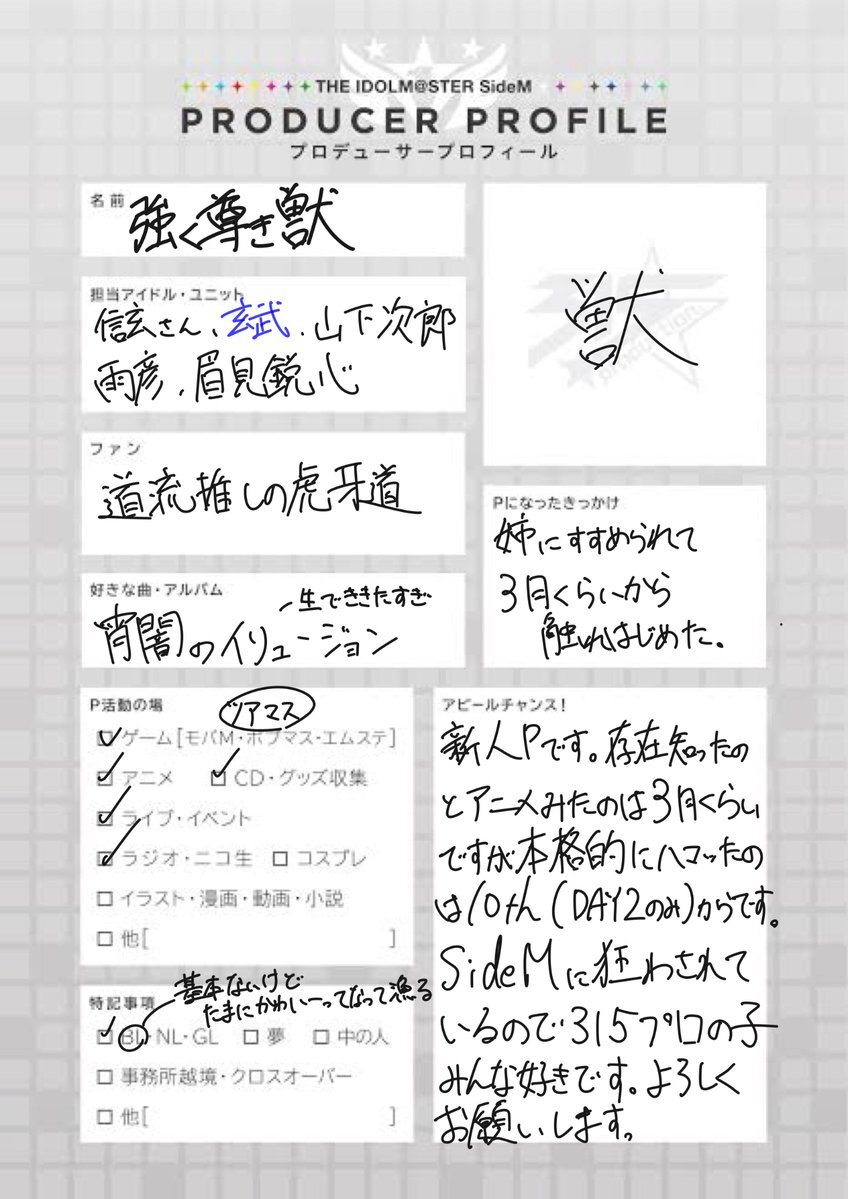 THE IDOLM@STER SideM
PRODUCER PROFILE
プロデューサープロフィール
名前
強く尊き獣
獣
担当アイドル・ユニット
信玄さん、玄武、山下次郎
雨彦、眉見鋭心
ファン
道流推しの虎牙道
Pになったきっかけ
姉にすすめられて
3月くらいから
触れはじめた。
好きな曲・アルバム
生でききたすぎ
宵闇のイリュージョン
P活動の場
ツアマス
ゲーム[モバM・ポプマス・エムステ]
アニメ CD・グッズ収集
ライブ・イベント
ラジオ・ニコ生 コスプレ
イラスト・漫画・動画・小説
他[ ]
特記事項
基本ないけど
たまにかわいーってなって漁る
BL・NL・GL 夢 中の人
事務所越境・クロスオーバー
他[ ]
アピールチャンス!
新人Pです。存在知ったの
とアニメみたのは3月くらい
ですが本格的にハマったの
は10th(DAY2のみ)からです。
SideMに狂わされて
いるので315プロの子
みんな好きです。よろしく
お願いします。